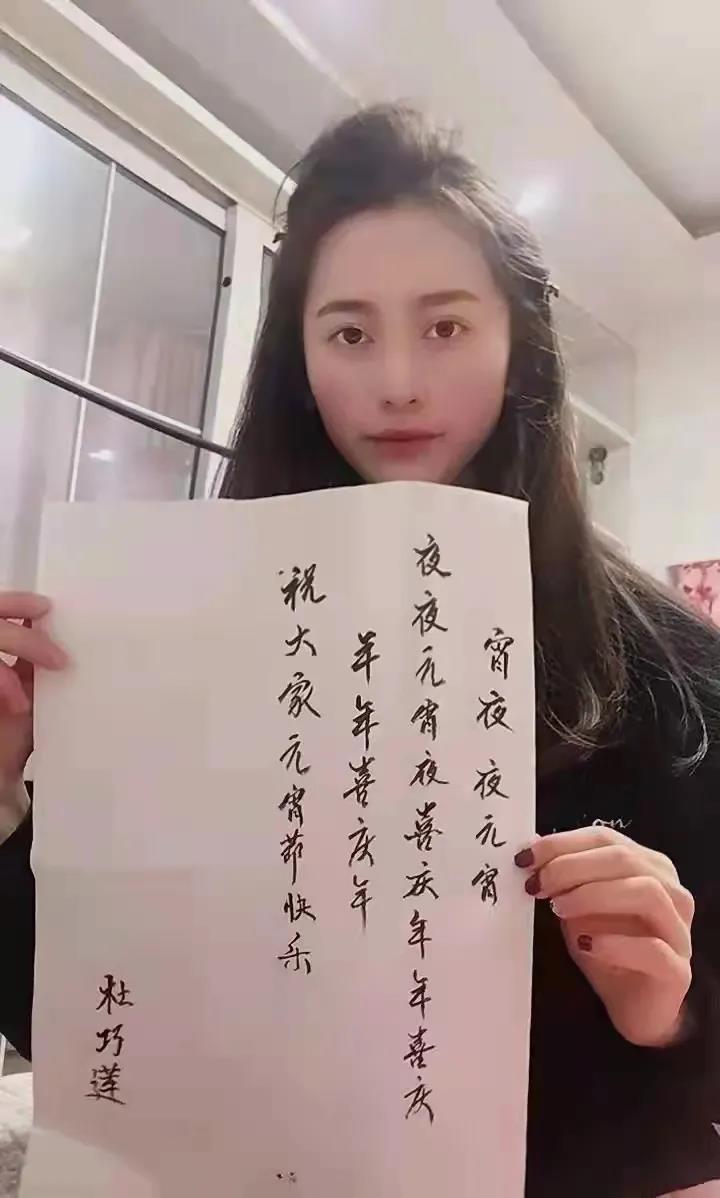 宵夜夜元宵
夜夜元宵夜喜庆年年喜庆
年年喜庆年
祝大家元宵节快乐
杜巧莲